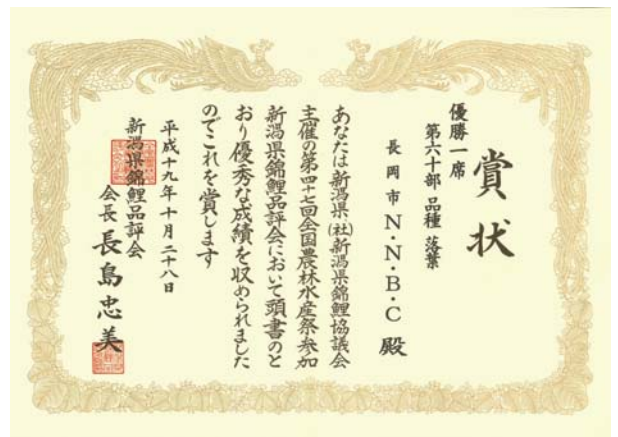 賞状
優勝一席
第六十部 品種 落葉
長岡市 N・N・B・C 殿
あなたは新潟県、(社)新潟県錦鯉協議会
主催の第四十七回全国農林水産祭参加
新潟県錦鯉品評会において頭書のと
おり優秀な成績を収められました
のでこれを賞します
平成十九年十月二十八日
新潟県錦鯉品評会
会長 長島忠美